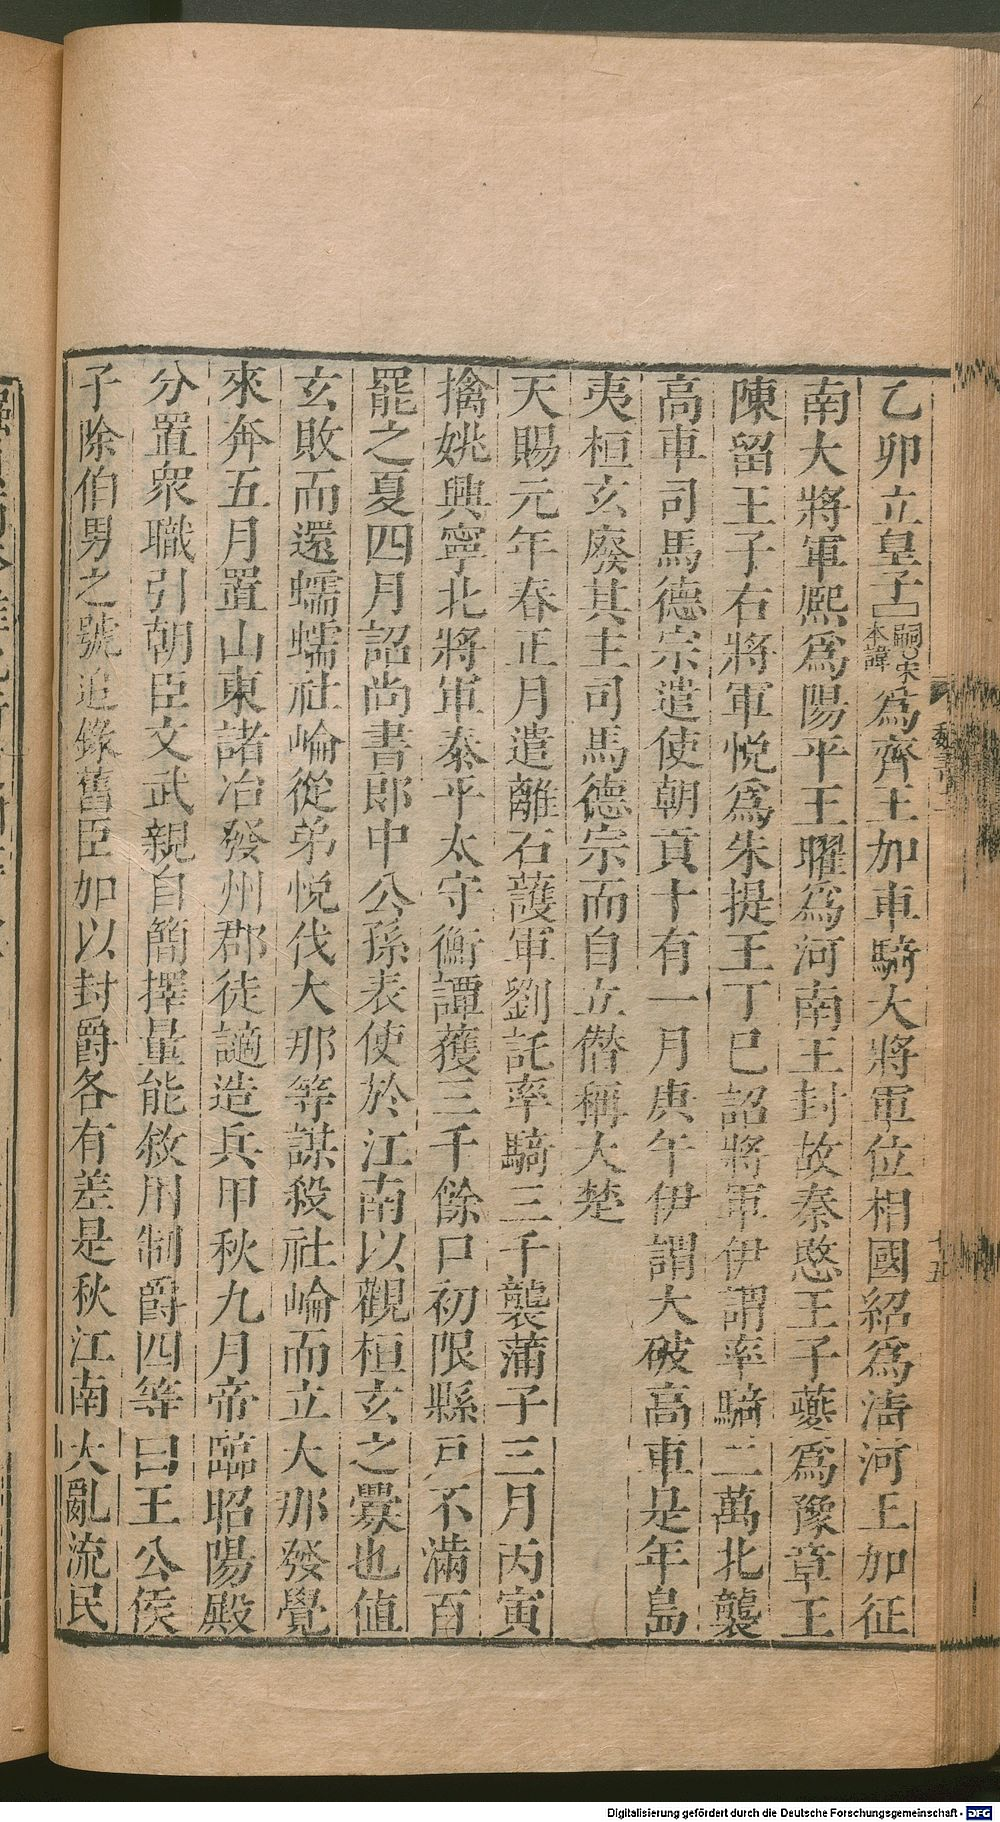 乙卯立皇子囗嗣宋本諱為齊王加車騎大將軍位相國紹爲淸河王加征
南大將軍熈爲陽平王曜爲河南王封故秦愍王子夔爲豫章王
陳留王子右將軍悅爲朱提王丁巳詔將軍伊謂率騎二萬北襲
高車司馬德宗遣使朝貢十有一月庚午伊謂大破高車是年島
夷桓玄廢其主司馬德宗而自立僭稱大楚
天賜元年春正月遣離石護軍劉託率騎三千襲蒲子三月丙寅
擒姚興寧北將軍泰平太守衡譚獲三千餘口初限縣戸不滿百
罷之夏四月詔尚書郎中公孫表使於江南以觀桓玄之釁也値
玄敗而還蠕蠕社崘從弟悅伐大那等謀殺社崘而立大那發覺
來奔五月置山東諸冶發州郡徒讁造兵甲秋九月帝臨昭陽殿
分置衆職引朝臣文武親自簡擇量能敘用制爵四等曰王公侯
子除伯男之號追錄舊臣加以封爵各有差是秋江南大亂流民
魏書二
十五
Digitalisierung gefördert durch die Deutsche Forschungsgemeinschaft - DFG